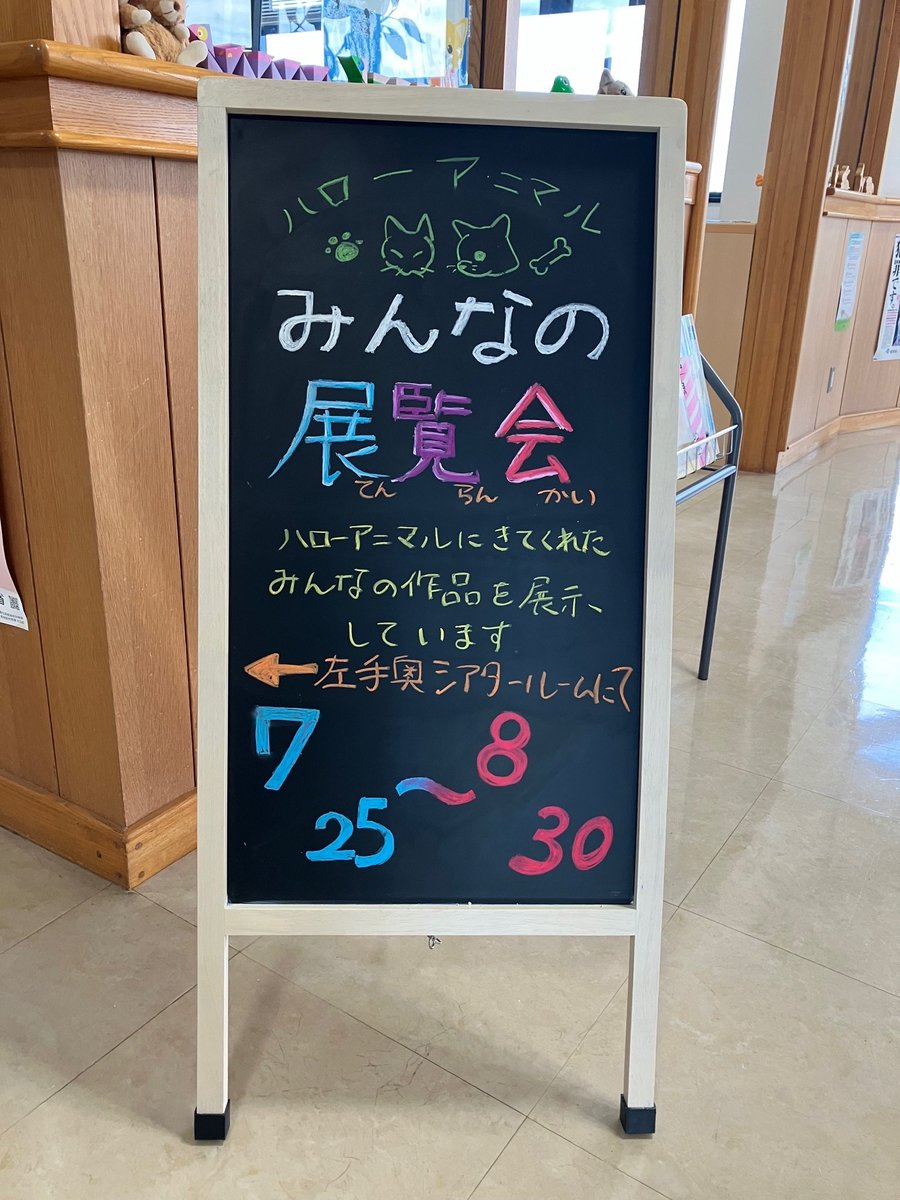 ハローアニマル
みんなの
展覧会
てん らん かい
ハローアニマルにきてくれた
みんなの作品を展示、
しています
←左手奥シアタールームにて
7 ～ 8
25 30